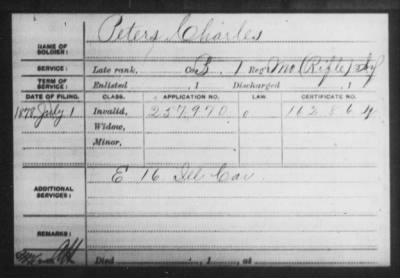 Peters Charles
NAME OF SOLDIER:
SERVICE: Late rank, Co. 1 Reg't Mo (Rifle)
TERM OF SERVICE: Enlisted , 1 Discharged , 1
DATE OF FILING. CLASS. APPLICATION NO. LAW. CERTIFICATE NO.
1878 July 1 Invalid, 257,970 162864
Widow,
Minor,
E 16 Ill Cav
ADDITIONAL SERVICES:
REMARKS:
Died , 1 , at